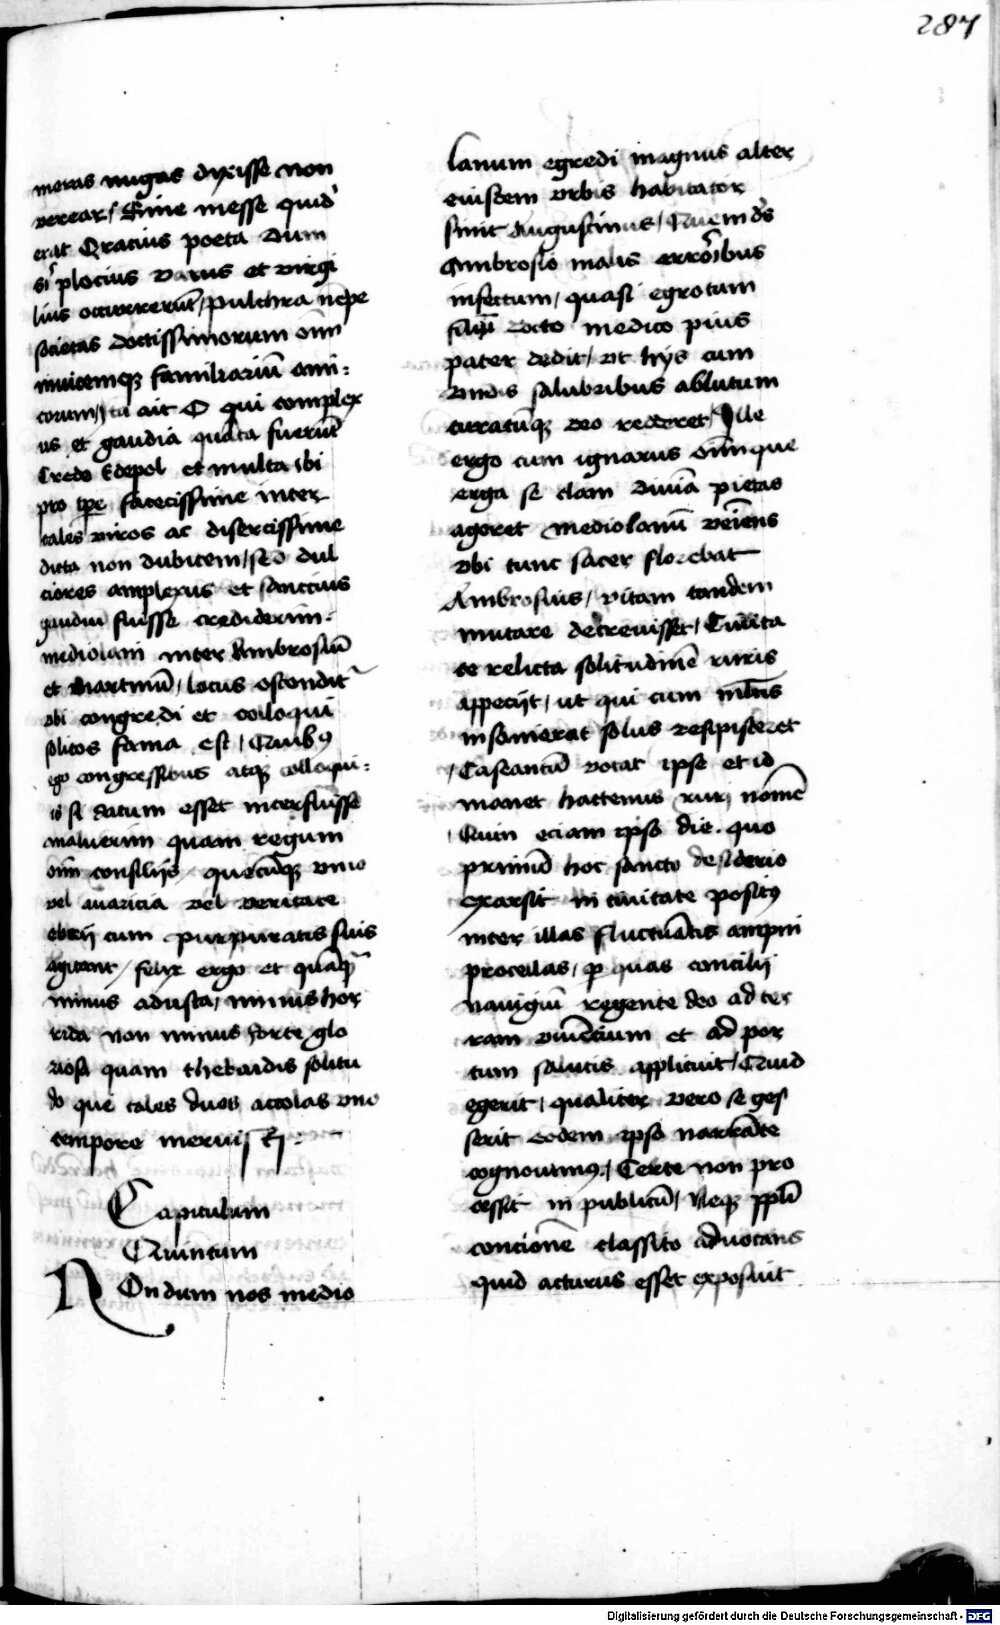 287
meras nugas dixisse non
verear / Sine messe quid
erat Oratius poeta dum
si plocius varus et virgi
lius occurrerūt / pulchra nēpe
societas doctissimorum om̄
inuicemqꝫ familiariū ami:
corum / ita ait O qui complex
us et gaudia quāta fuerūt
Credo Edepol et multa ibi
pro tp̄e facecissime inter
tales viros ac disertissime
dicta non dubitem / sed dul
ciores amplexus et sanctius
gaudiū fuisse crediderim:
mediolani inter Ambrosiū
et Martinū / locus ostendit̄
vbi congredi et colloqui
solitos fama est / Quibꝰ
ego congressibus atqꝫ colloqui:
is si datum esset interfuisse
maluerim quam regum
om̄ consilijs quecūqꝫ vino
vel auaricia vel veritate
ebrij cum purpuratis suis
agitant / felix ergo et quāqꝫ
minus adusta / minus hor
rida non minus forte glo
riosa quam thebaidis solitu
do que tales duos accolas vno
tempore meruisti:
Capitulum
Quintum
Nondum nos medio
lanum egredi magnus alter
eiusdem vrbis habitator
sinit Augustinus / Quem ds̄
Ambrosio malis errōibus
infectum / quasi egrotum
docto medico pius
pater dedit / vt hijs cum
vndis salubribus ablutum
curatūqꝫ deo redderet / Ille
ergo cum ignarus omniūque
erga se clam diuīa pietas
ageret mediolanū veīens
vbi tunc sacer florebat
Ambrosius / vitam tandem
mutare decreuisset / Ciuita
te relicta solitudinē ruris
appetijt / ut qui cum mltīs
insanierat solus resipisceret
/ Caseantū vocat ipse et id
manet hactenus ruri nomē
/ Quin eciam ipso die quo
primū hoc sancto desiderio
exarsit in ciuitate positꝰ
inter illas fluctuātis animi
procellas / p quas concilij
nauigiū regente deo ad ter
ram viuēcium et ad por
tum salutis applicuit / Quid
egerit / qualiter vero se ges
serit eodem ipso narrāte
cognouimꝰ / Certe non pro
cessit in publicū / Neqꝫ ppl̄i
concionē classico aduocans
quid acturus esset exposuit
Digitalisierung gefördert durch die Deutsche Forschungsgemeinschaft - DFG